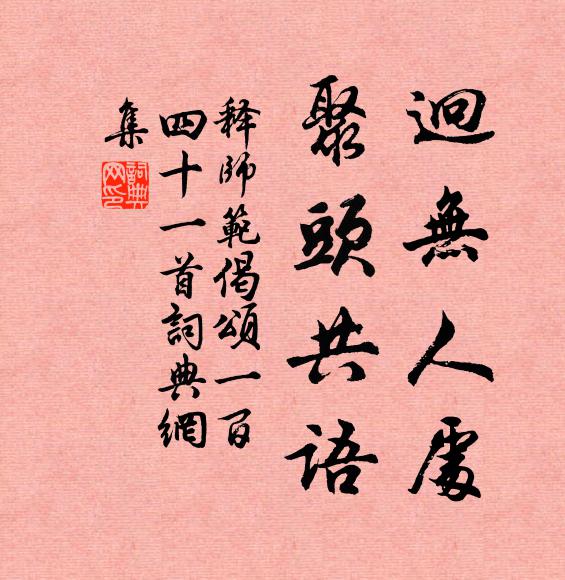 迥無人處
聚頭共語
释師範偈頌一百
四十一首詞典網
集
詞典网印